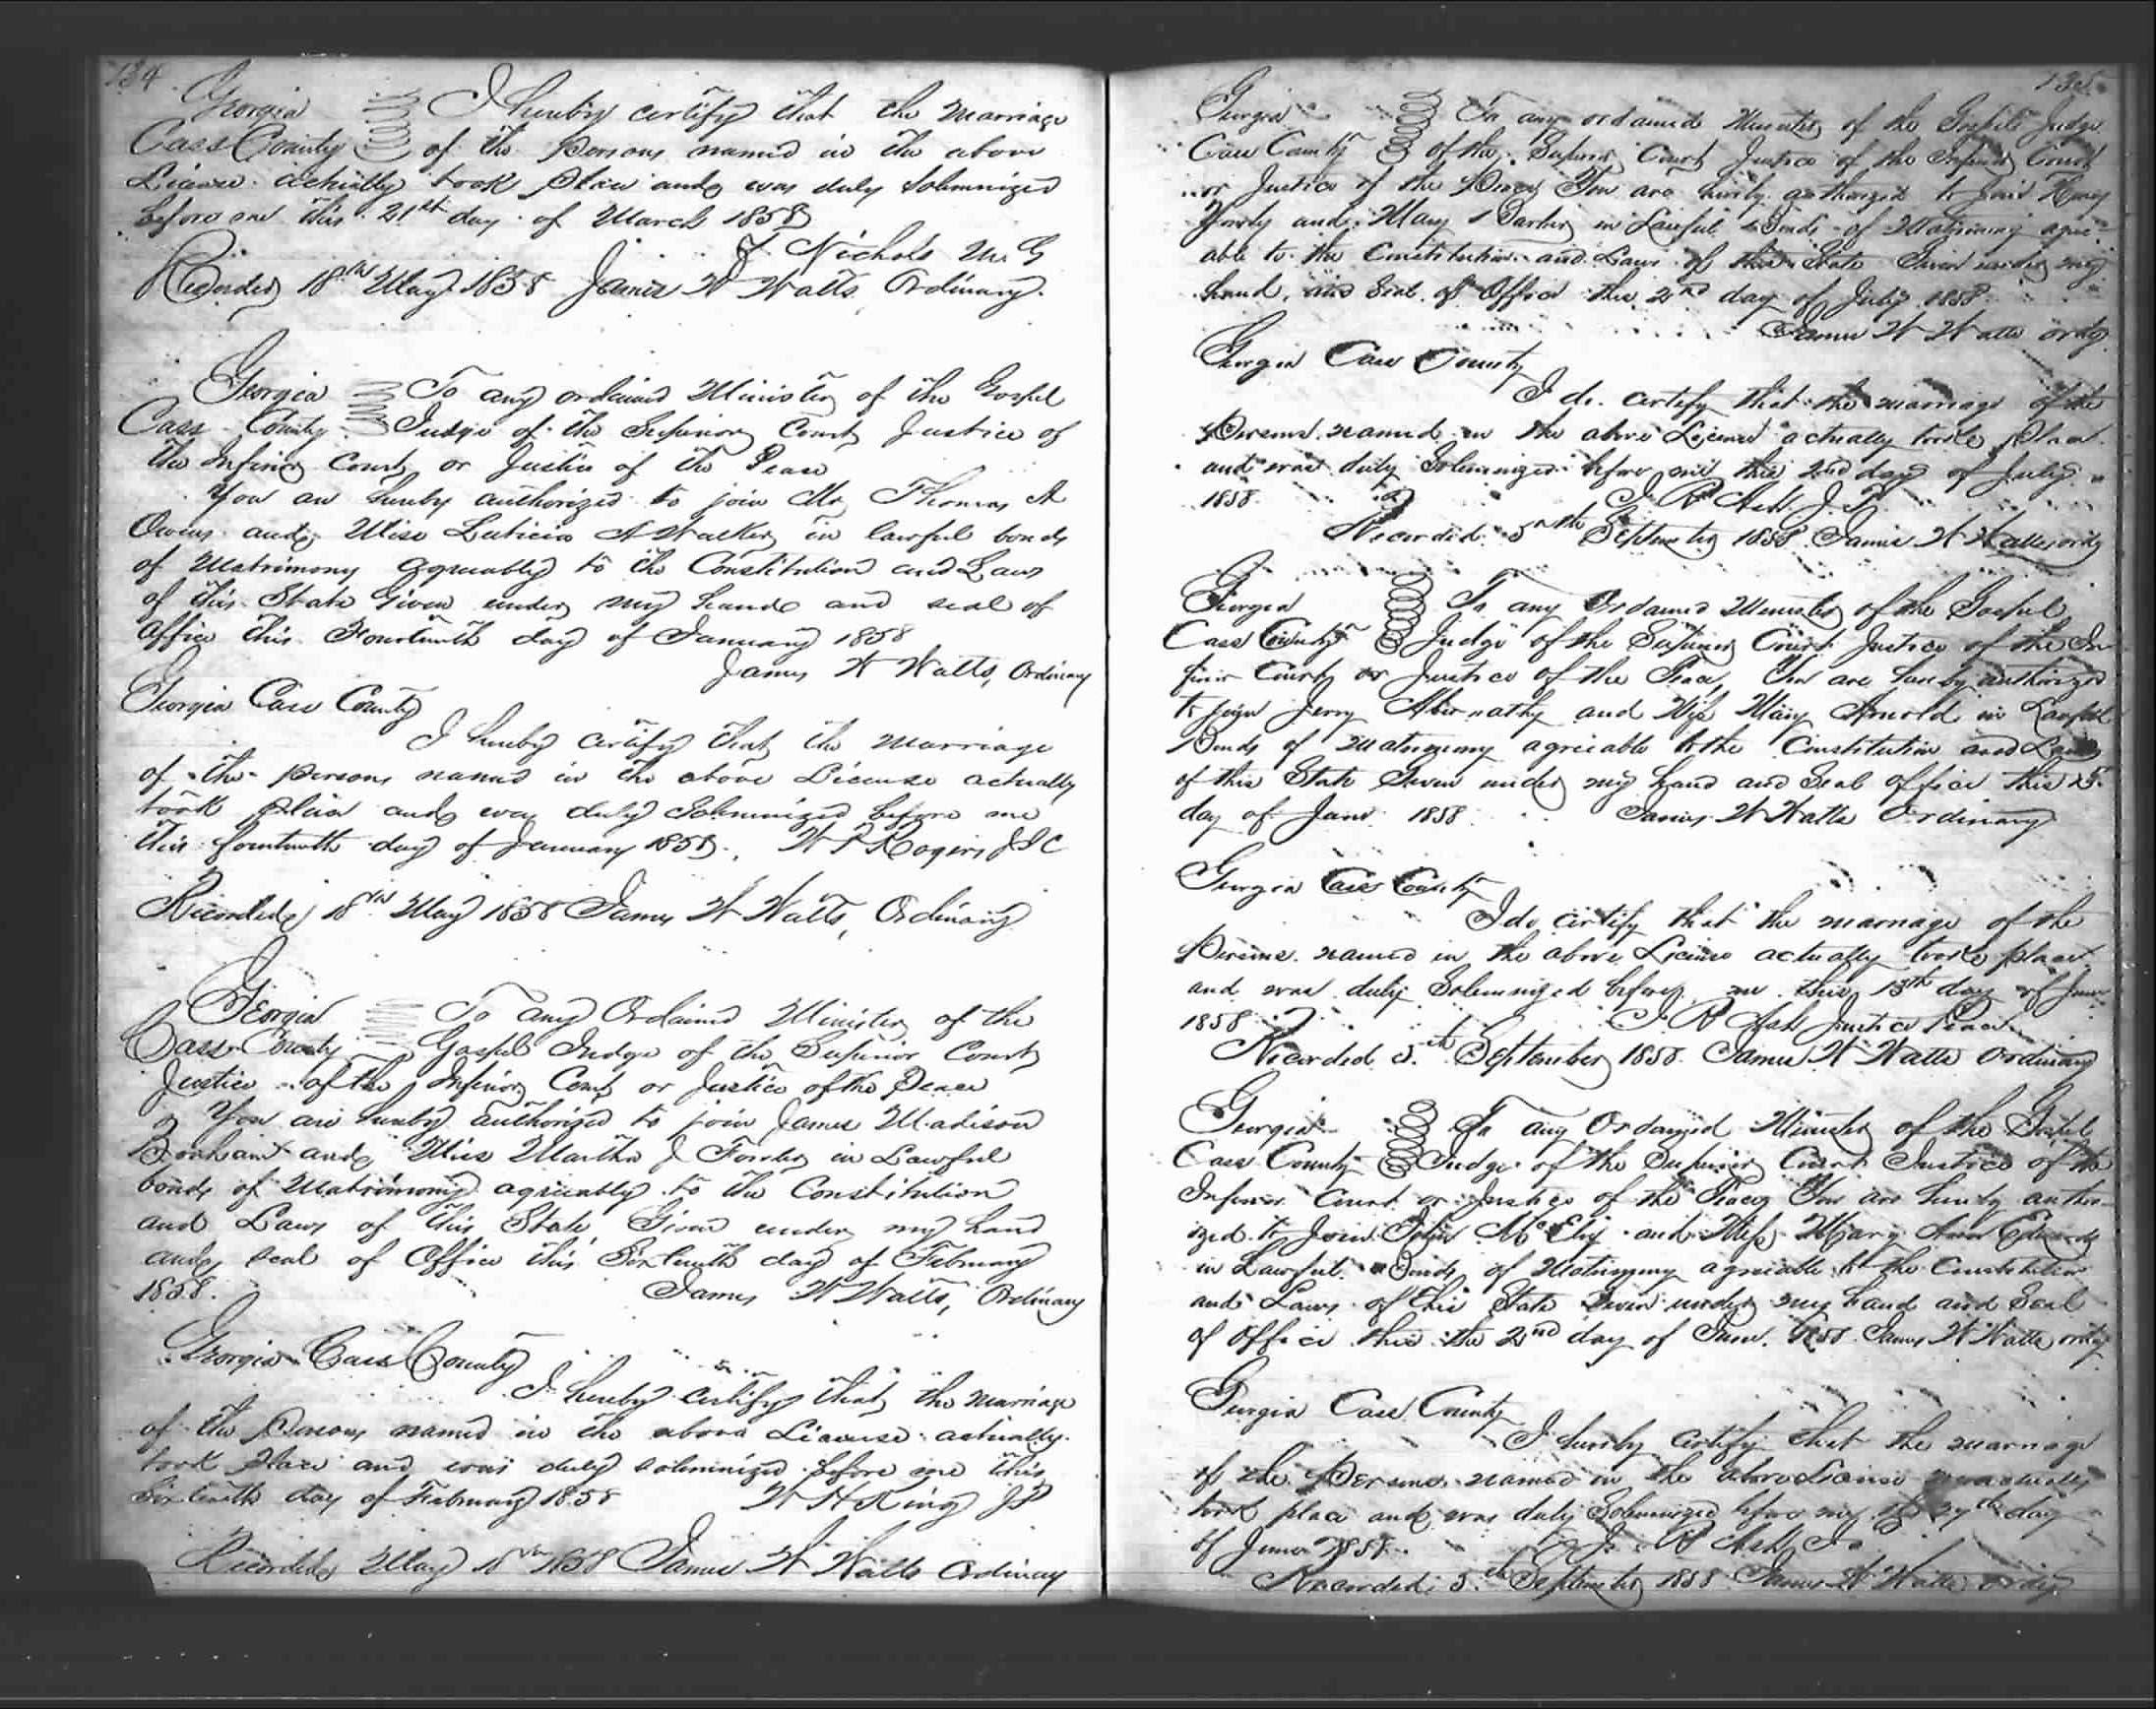 134
Georgia I hereby certify that the marriage
Cass County of the Persons named in the above
License actually took place and was duly Solemnized
before me this 21st day of March 1858
J. Nichols M. G
Recorded 18th May 1858 James W Watts, Ordinary.
Georgia To any ordained Minister of the Gospel
Cass County Judge of the Superior Court Justice of
the Inferior Court or Justice of the Peace
You are hereby authorized to join Mr Thomas A
Owens and Miss Leticia A Walker in lawful bonds
of Matrimony agreeably to the Constitution and Laws
of this State Given under my hand and seal of
office this Fourteenth day of January 1858
James W Watts, Ordinary
Georgia Cass County
I hereby certify that the marriage
of the persons named in the above License actually
took place and was duly Solemnized before me
this fourteenth day of January 1858. W Rogers J I C
Recorded 18th May 1858 James W Watts, Ordinary
Georgia To any Ordained Minister of the
Cass County Gospel Judge of the Superior Court
Justice of the Inferior Court or Justice of the Peace
You are hereby authorized to join James Madison
and Miss Martha J in Lawful
bonds of Matrimony agreeably to the Constitution
and Laws of this State Given under my hand
and seal of Office this Sixteenth day of February
1858. James W Watts, Ordinary
Georgia Cass County
I hereby certify that the marriage
of the Persons named in the above License actually
took place and was duly solemnized before me this
Sixteenth day of February 1858 W H King J P
Recorded May 18th 1858 James W Watts Ordinary
135
Georgia To any ordained Minister of the Gospel Judge
Cass County of the Superior Court Justice of the Inferior Court
or Justice of the Peace You are hereby authorized to join
and Mary in Lawful Bonds of Matrimony agree
able to the Constitution and Laws of this State Given under my
hand and Seal of Office this 2nd day of July 1858
James W Watts ordy
Georgia Cass County
I do certify that the marriage of the
Persons named in the above License actually took place
and was duly Solemnized before me this 2nd day of July
1858. J. R Ash J. P.
Recorded 5th September 1858 James W Watts ordy
Georgia To any Ordained Minister of the Gospel
Cass County Judge of the Superior Court Justice of the In
ferior Court or Justice of the Peace, You are hereby authorized
to join Jerry Abernathy and Miss Mary Arnold in Lawful
Bonds of Matrimony agreeable to the Constitution and Laws
of this State Given under my hand and Seal office this
day of June 1858 James W Watts Ordinary
Georgia Cass County
I do certify that the marriage of the
Persons named in the above License actually took place
and was duly Solemnized before me this 13th day of June
1858 J. R Ash Justice Peace
Recorded 5th September 1858. James W Watts Ordinary
Georgia To any Ordained Minister of the Gospel
Cass County Judge of the Superior Court Justice of the
Inferior Court or Justice of the Peace You are hereby author
ized to Join John and Miss Mary Ann Edwards
in Lawful Bonds of Matrimony agreeable to the Constitution
and Laws of this State Given under my hand and Seal
of Office this the 22nd day of June. 1858 James W Watts ordy
Georgia Cass County
I hereby certify that the marriage
of the Persons named in the above License actually
took place and was duly Solemnized before me the 27th day
of June 1858. J. R Ash J. P.
Recorded 5th September 1858 James W Watts ordy